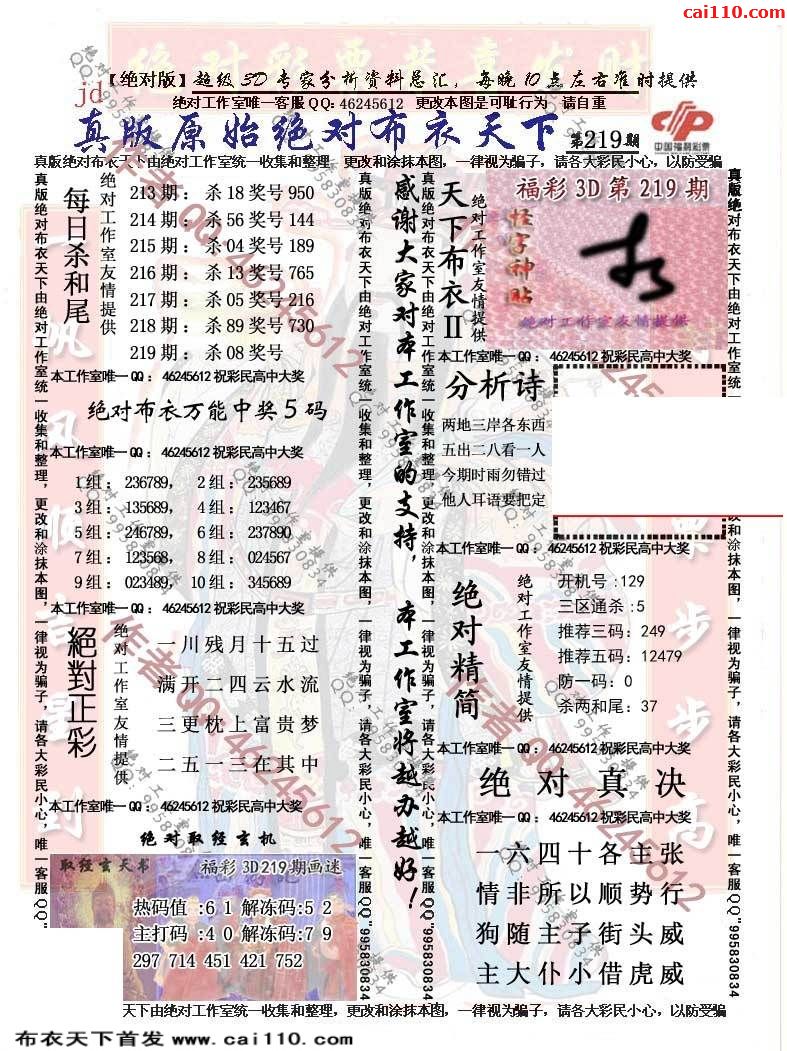 cai110.com
【绝对版】超级3D专家分析资料总汇，每晚10点左右准时提供
jd
绝对工作室唯一客服QQ:46245612 更改本图是可耻行为 请自重
真版原始绝对布衣天下 第219期
中国福利彩票
真版绝对布衣天下由绝对工作室统一收集和整理，更改和涂抹本图，一律视为骗子，请各大彩民小心，以防受骗
每日杀和尾
绝对工作室友情提供
213期：杀18奖号950
214期：杀56奖号144
215期：杀04奖号189
216期：杀13奖号765
217期：杀05奖号216
218期：杀89奖号730
219期：杀08奖号
本工作室唯一QQ：46245612祝彩民高中大奖
绝对布衣万能中奖5码
本工作室唯一QQ：46245612祝彩民高中大奖
1组：236789，2组：235689
3组：135689，4组：123467
5组：246789，6组：237890
7组：123568，8组：024567
9组：023489，10组：345689
本工作室唯一QQ：46245612祝彩民高中大奖
絕對正彩
绝对工作室友情提供
一川残月十五过
满开二四云水流
三更枕上富贵梦
二五一三在其中
本工作室唯一QQ：46245612祝彩民高中大奖
绝对取经玄机
取经玄天书
福彩3D219期画迷
热码值:61解冻码:52
主打码:40解冻码:79
297 714 451 421 752
真版绝对布衣天下由绝对工作室统一收集和整理，更改和涂抹本图，一律视为骗子，请各大彩民小心，唯一客服QQ"995830834
感谢大家对本工作室的支持，本工作室将越办越好！
天下布衣II
绝对工作室友情提供
福彩3D第219期
怪字神贴
绝对工作室友情提供
本工作室唯一QQ：46245612祝彩民高中大奖
分析诗
两地三岸各东西
五出二八看一人
今期时雨勿错过
他人耳语要把定
本工作室唯一QQ：46245612祝彩民高中大奖
绝对精简
绝对工作室友情提供
开机号:129
三区通杀:5
推荐三码:249
推荐五码:12479
防一码:0
杀两和尾:37
本工作室唯一QQ：46245612祝彩民高中大奖
绝对真决
本工作室唯一QQ：46245612祝彩民高中大奖
一六四十各主张
情非所以顺势行
狗随主子街头威
主大仆小借虎威
天下由绝对工作室统一收集和整理，更改和涂抹本图，一律视为骗子，请各大彩民小心，以防受骗
布衣天下首发 www.cai110.com
作者QQ:46245612